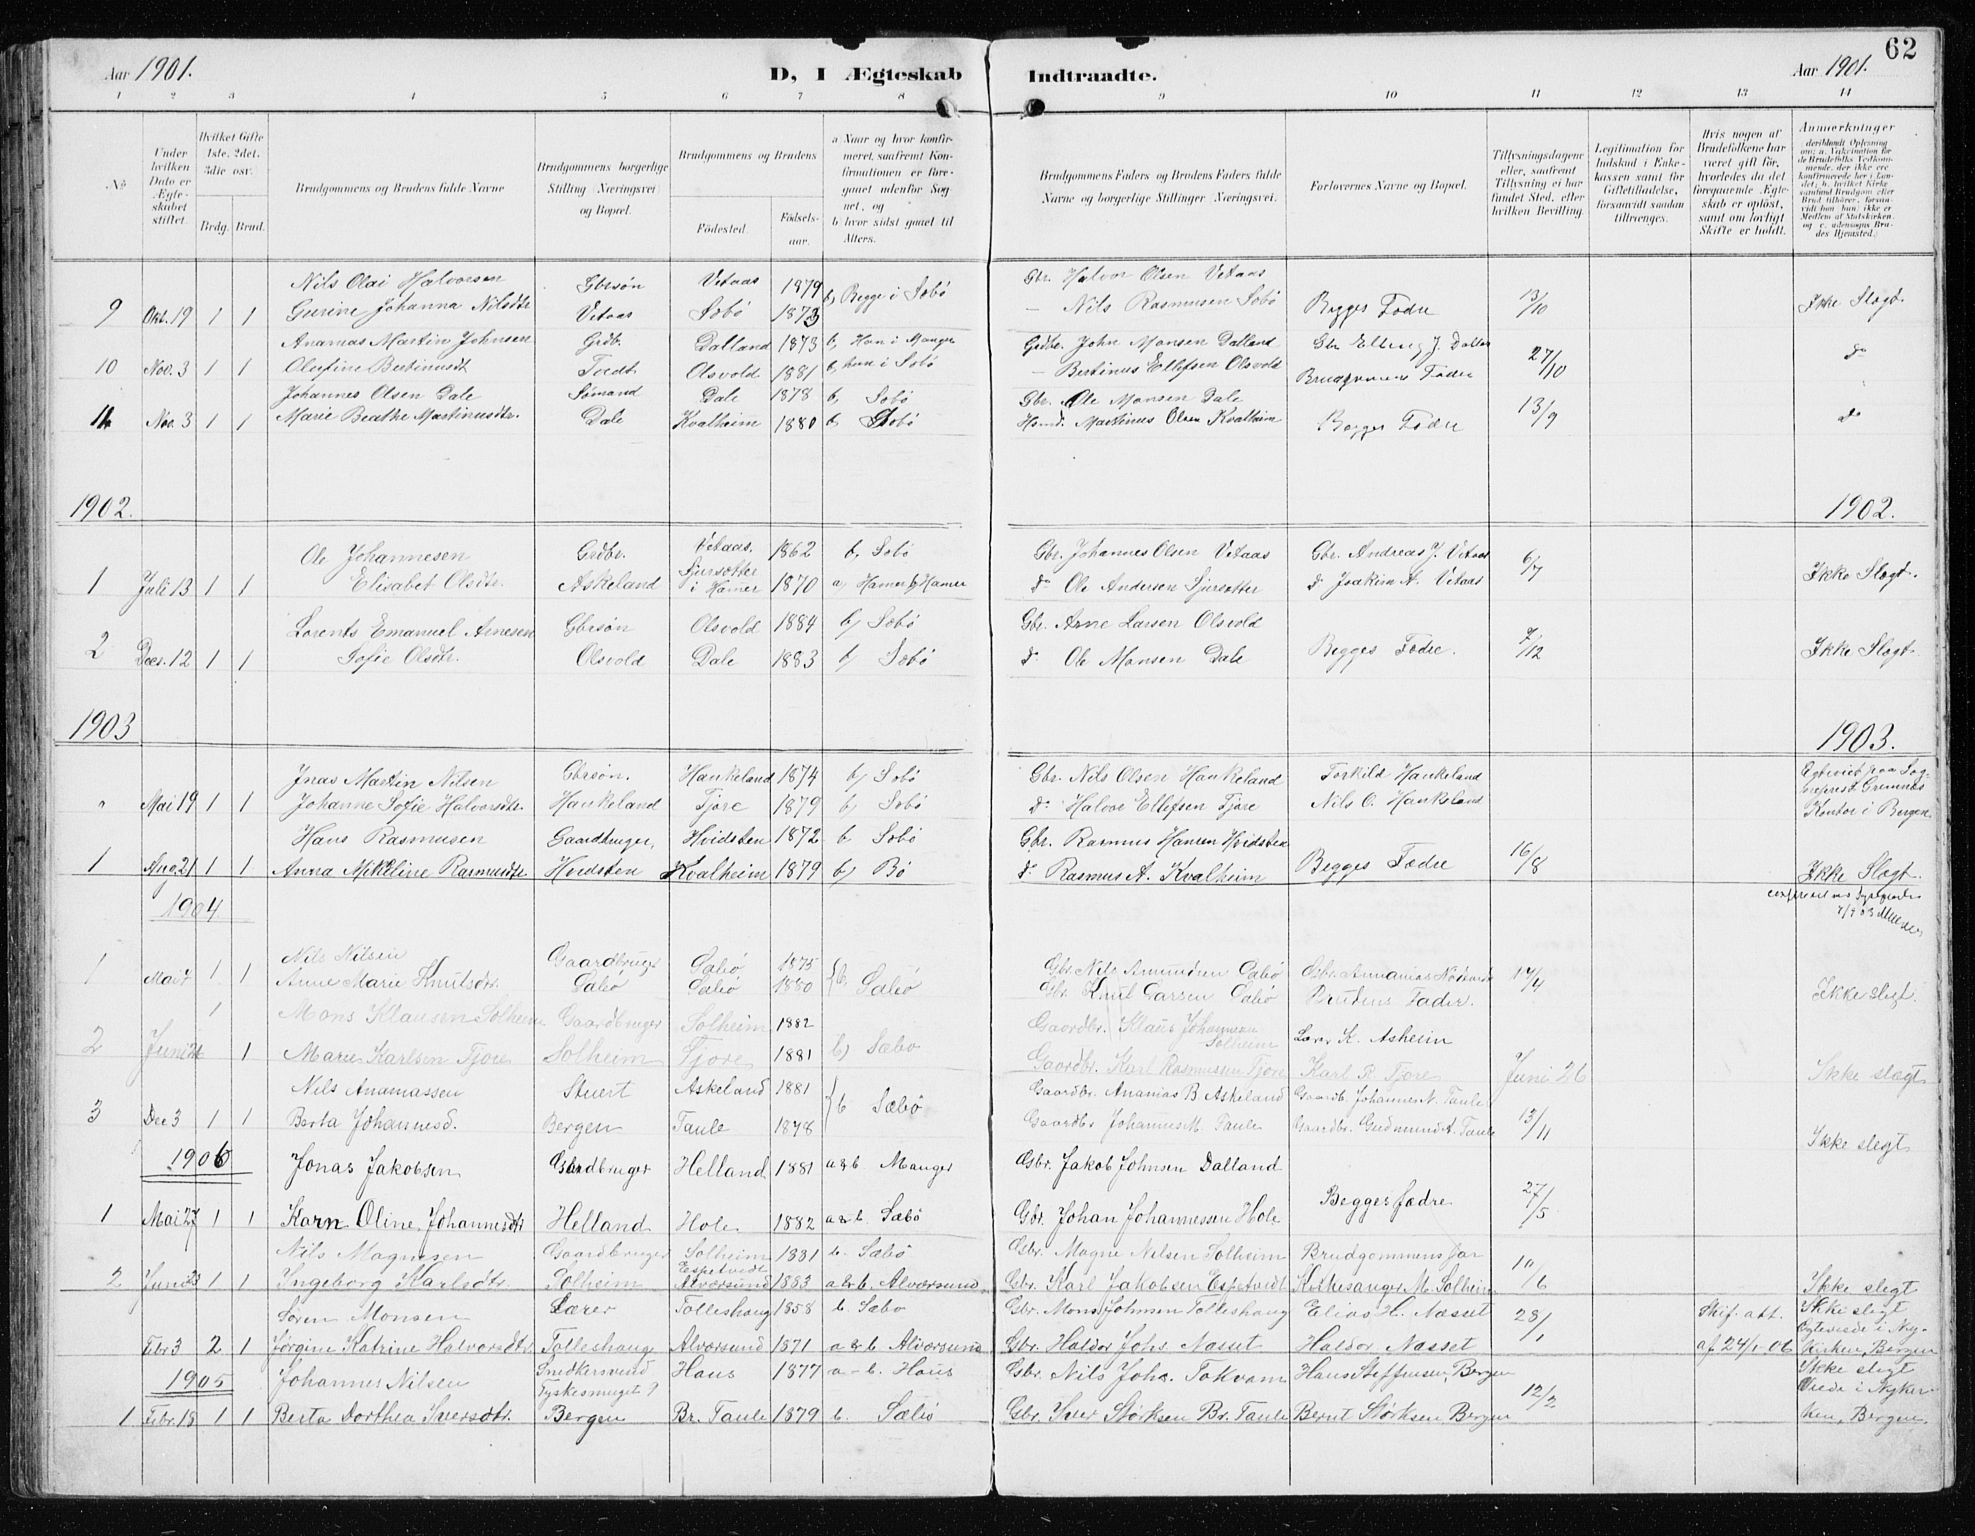 62
Aar 1901. D, I Ægteskab Indtraadte. Aar 1901.
1 2 3 4 5 6 7 8 9 10 11 12 13 14
No
Under hvilken Dato er Ægteskabet stiftet.
Hvilket Gifte 1ste. 2det. 3die osv.
Brdg. Brud.
Brudgommens og Brudens fulde Navne
Brudgommens borgerlige Stilling Næringsvei og Bopæl.
Brudgommens og Brudens
Fødested.
Fødselsaar.
a Naar og hvor konfirmeret, saafremt Konfirmationen er foregaaet udenfor Sognet, og b hvor sidst gaaet til Alters.
Brudgommens Faders og Brudens Faders fulde Navne og borgerlige Stillinger Næringsvei.
Forlovernes Navne og Bopæl.
Tillysningsdagene eller, saafremt Tillysning ei har fundet Sted, efter hvilken Bevilling.
Legitimation for Indskud i Enkekassen samt for Giftetilladelse, forsaavidt saadan tiltrænges.
Hvis nogen af Brudefolkene har været gift før, hvorledes da det foregaaende Ægteskab er opløst, samt om lovligt Skifte er holdt.
Anmerkninger
Nils Olai Halvorsen Gbrsøn Vetaas 1879 b, Begge i Sæbø Gbr. Halvor Olsen Vetaas
9 Okt. 19 1 1 Gurine Johanna Nilsdtr Vetaas Sæbø 1873 — Nils Rasmusen Sæbø Begges Fædre 13/10 Ikke Slegt.
Ananias Martin Johnsen Grdb. Dalland 1873 b, Han i Manger Grdbr. John Monsen Dalland Gbr Elling J. Dalland
10 Nov. 3 1 1 Olufine Bertinusdt Tvedt Olsvold 1881 b, hun i Sæbø — Bertinus Ellefsen Olsvold Brudgommens Fædre 27/10 do
Johannes Olsen Dale Sømand Dale 1878 b, Sæbø Gbr. Ole Monsen Dale
11 Nov. 3 1 1 Marie Beathe Martinusdtr. Dale Kvalheim 1880 b, Sæbø Hsmd. Martinus Olsen Kvalheim Begges Fædre 13/9 do
1902. 1902.
Ole Johannesen Grdbr. Vetaas. 1862 b, Sæbø Gbr. Johannes Olsen Vetaas Gbr. Andreas J. Vetaas
1 Juli 13 1 1 Elisabet Olsdtr. Askeland Sjursætter i Hamer 1870 a, Hamer b, Hamer do Ole Andersen Sjursætter do Joakim A. Vetaas 6/7 Ikke Slegt.
Lorents Emanuel Arnesen Gbrsøn Olsvold 1884 b, Sæbø Gbr. Arne Larsen Olsvold
2 Dec. 12 1 1 Sofie Olsdtr. Olsvold Dale 1883 b, Sæbø do Ole Monsen Dale Begges Fædre. 7/12 Ikke Slegt.
1903 1903.
Jnas Martin Nilsen Gbrsøn. Haukeland 1874 b, Sæbø Gbr. Nils Olsen Haukeland Torkild Haukeland
" Mai 19 1 1 Johanne Sofie Halvorsdtr. Haukeland Fjøre 1879 b, Sæbø do Halvor Ellefsen Fjøre Nils O. Haukeland Kontor i Bergen.
Hans Rasmusen Gaardbruger. Hvidsten 1872 b Sæbø Gbr. Rasmus Hansen Hvidsten
1 Aug. 21 1 1 Anna Mikeline Rasmusdtr Hvidsten Kvalheim 1879 b, Bø do Rasmus A. Kvalheim Begges Fædre 16/8 Ikke Slegt.
1904
Nils Nilsen Gaardbruger Sæbø 1875 b, Sæbø Gbr. Nils Amundsen Sæbø Gbr. Annanias
1 Mai 7 1 1 Anne Marie Knutsdtr. Sæbø Sæbø 1880 Gbr. Knut Larsen Sæbø Brudens Fader. 17/4 Ikke slegt.
1 Mons Klausen Solheim Gaardbruger Solheim 1882 Gaardbr. Klaus Johannesen Solheim Lærer K. Askheim
2 Juni 26 1 Marie Karlsen Fjøre Solheim Fjøre 1881 b, Sæbø Gaardbr. Karl Rasmussen Fjøre Karl R. Fjøre Juni 26 Ikke slegt
Nils Ananiassen Stuert Askeland 1881 b Sæbø Gaardbr. Ananias B Askeland Gaardb. Johannes N. Taule
3 Dec 3 1 1 Berta Johannesd. Bergen Taule 1878 Gaardbr Johannes M. Taule Gaardbr. Gudmund A. Taule 13/11 Ikke slegt
1906 Jonas Jakobsen Gardbruger Helland 1881 a & b Manger Gbr. Jakob Johnsen Dalland
1 Mai 27 1 1 Karn Oline Johannesdtr Helland Hole 1882 a & b. Sæbø Gbr. Johan Johannessen Hole Begges fædre 27/5
Nils Magnesen Gaardbruger Solheim 1881 b. Sæbø Gbr. Magne Nilsen Solheim Brudgommens far
2 Juni 23 1 1 Ingeborg Karlsdtr. Solheim Espetvedt Alversund 1883 a & b. Alversund Gbr. Karl Jakobsen Espetvedt Kirkesanger M. Solheim 10/6 Ikke slegt
Søren Monsen Lærer Tolleshaug 1858 b. Sæbø Gbr. Mons Johnsen Tolleshaug Elias H. Næsset 28/1 Skif. att. Ikke slegt
Febr 3 2 1 Jørgine Katrine Halvorsdtr. Tolleshaug Alversund 1871 a & b Alversund Gbr. Haldor Johs. Næsset Haldor Næsset af 24/1-06 Egteviede i Nykirken, Bergen
1905 Johannes Nilsen Snedkersvend Haus 1877 a - b. Haus Gbr. Nils Johs. Takvam Hans Steffensen, Bergen Ikke slegt
1 Febr. 18 1 1 Berta Dorthea Iversdtr. Tyskesmuget 9 Bergen Br. Taule 1879 b. Sæbø Gbr. Iver Størksen Br. Taule Bernt Størksen Bergen 12/2 Viede i Nykerken, Bergen.